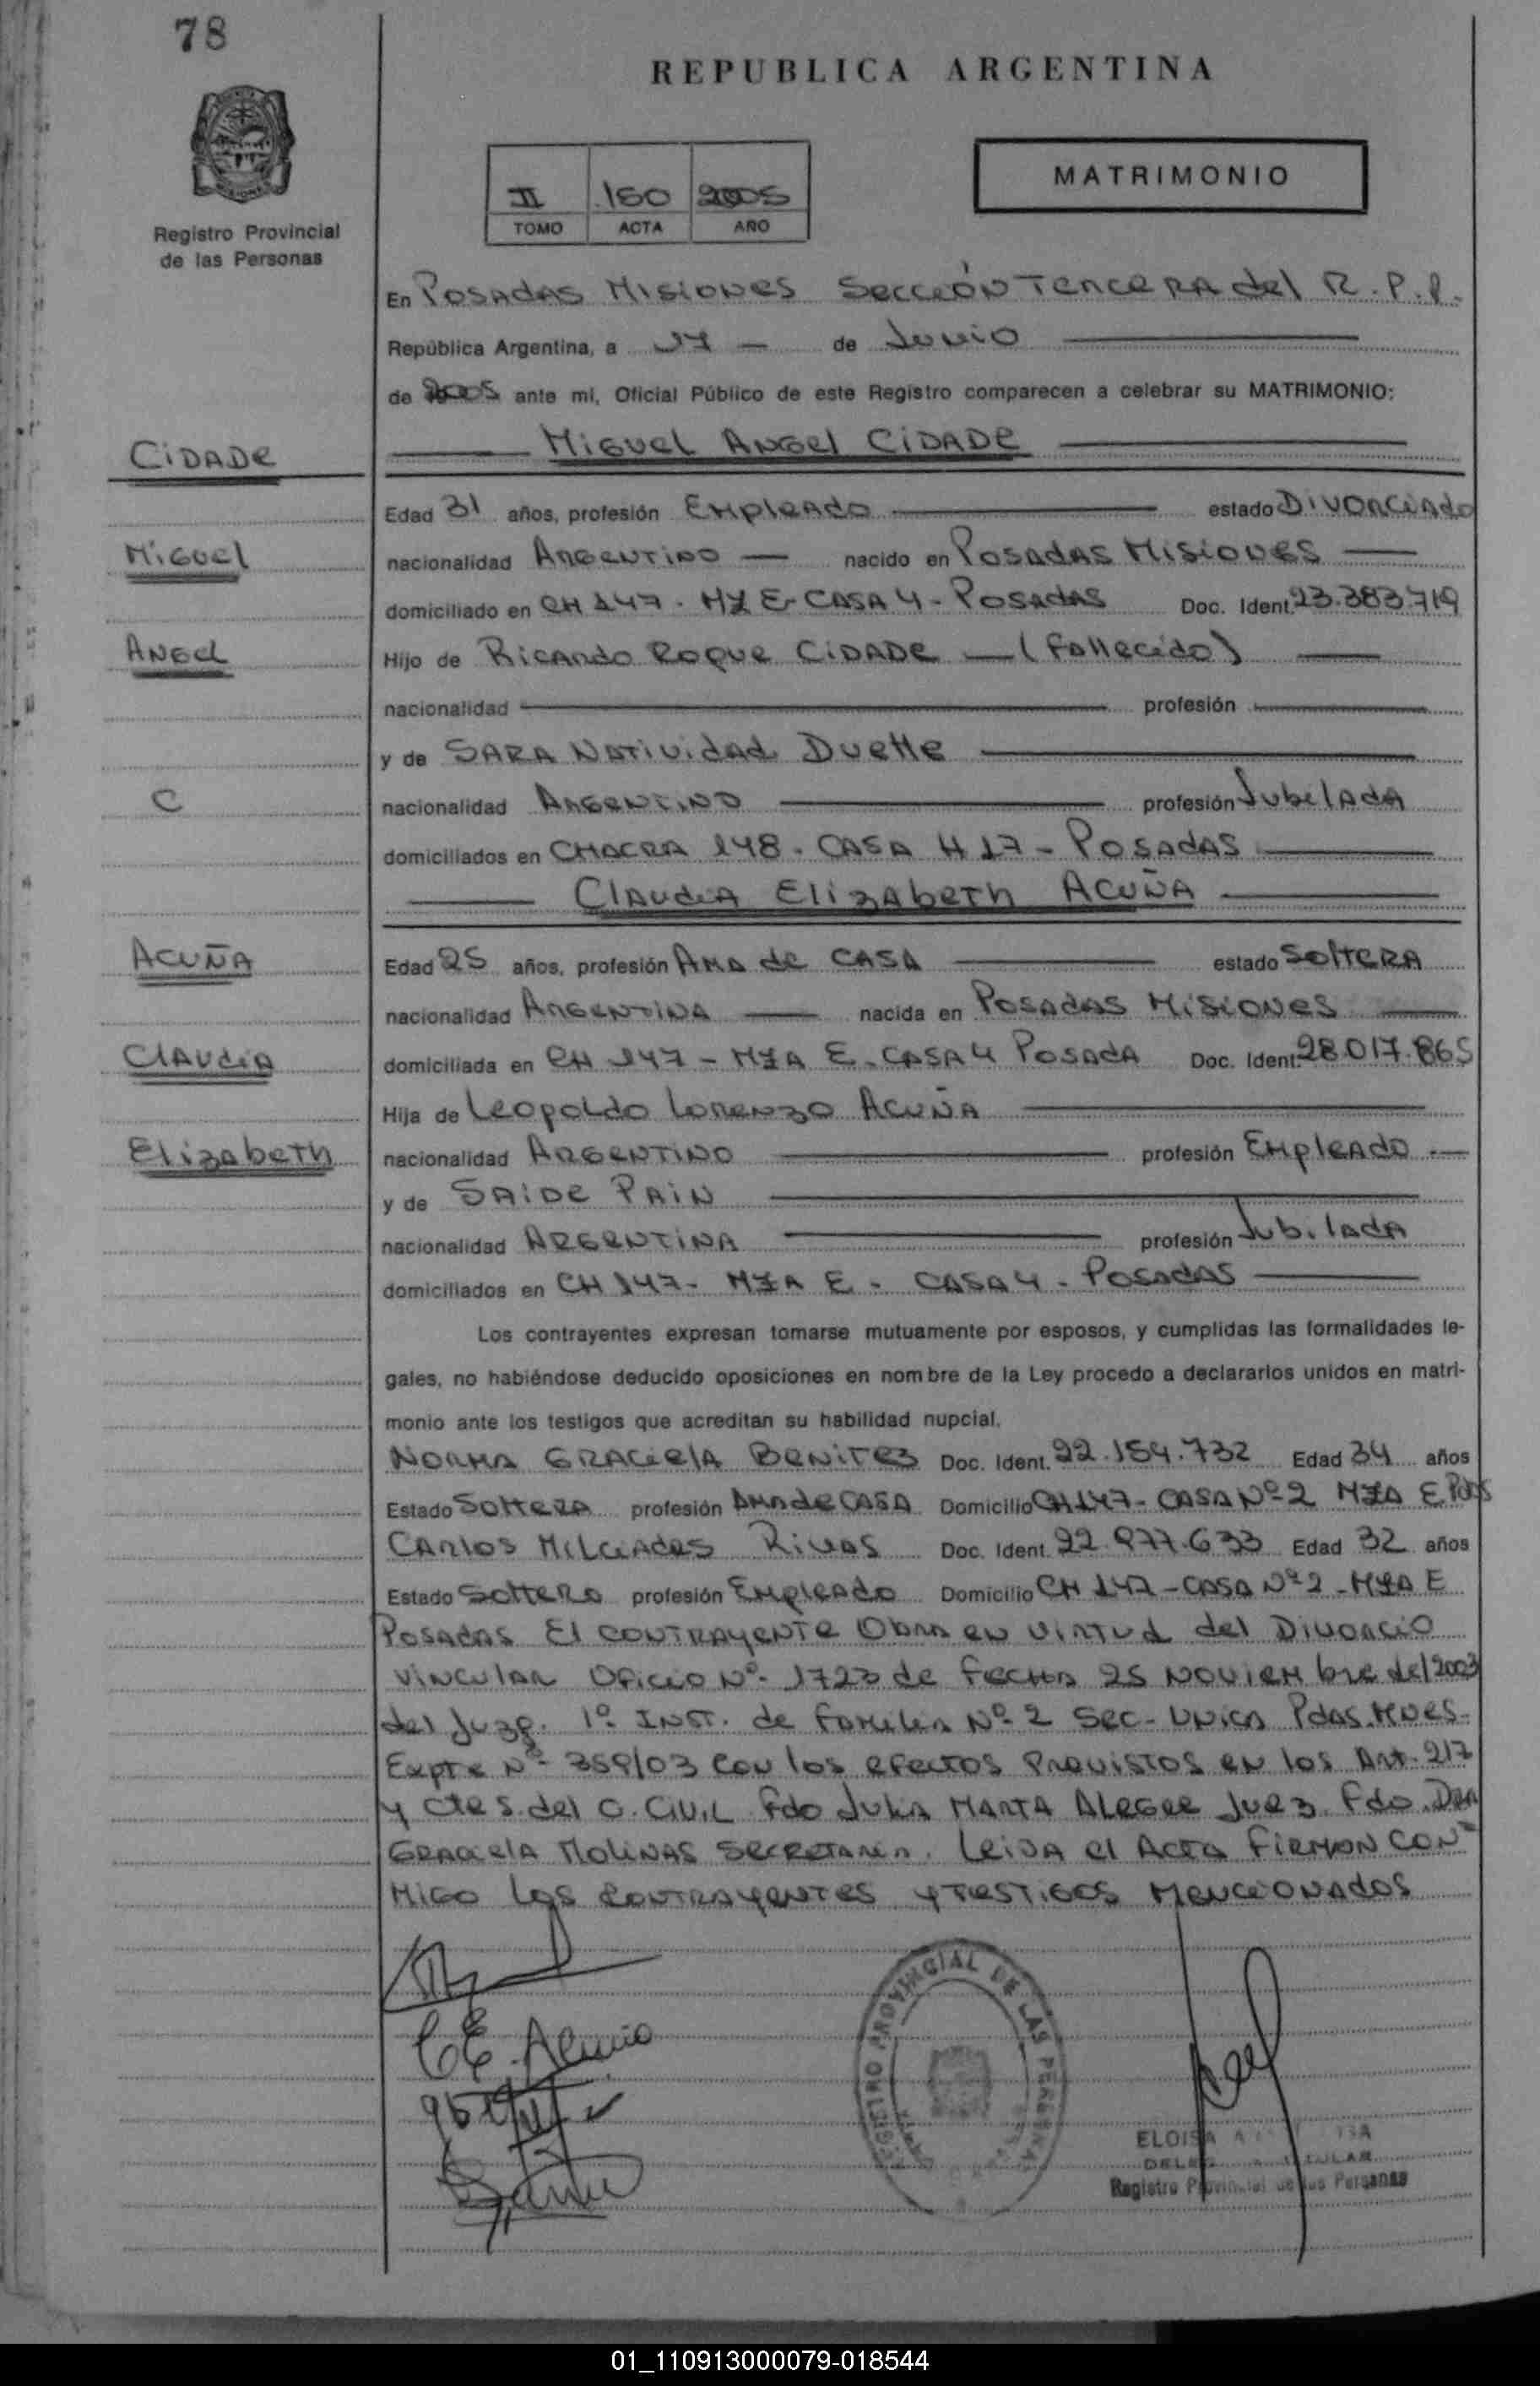 78
REPUBLICA ARGENTINA
MATRIMONIO
II 150 2005
TOMO ACTA AÑO
Registro Provincial
de las Personas
En POSADAS MISIONES SECCIÓN TERCERA del R.P.P.
República Argentina, a 17 - de Junio
de 2005 ante mi, Oficial Público de este Registro comparecen a celebrar su MATRIMONIO:
CIDADE
MIGUEL ANGEL CIDADE
Edad 31 años, profesión EMPLEADO estado DIVORCIADO
MIGUEL
nacionalidad ARGENTINO nacido en POSADAS MISIONES
domiciliado en CH 147 - MZ E - CASA 4 - POSADAS Doc. Ident. 23.383.719
ANGEL
Hijo de RICARDO ROQUE CIDADE - (Fallecido)
nacionalidad profesión
y de SARA NATIVIDAD DUETTE
C
nacionalidad ARGENTINO profesión JUBILADA
domiciliados en CHACRA 148 - CASA H 17 - POSADAS
CLAUDIA ELIZABETH ACUÑA
ACUÑA
Edad 25 años, profesión AMA de CASA estado SOLTERA
nacionalidad ARGENTINA nacida en POSADAS MISIONES
CLAUDIA
domiciliada en CH 147 - MZA E - CASA 4 POSADA Doc. Ident. 28.017.865
Hija de LEOPOLDO LORENZO ACUÑA
ELIZABETH
nacionalidad ARGENTINO profesión EMPLEADO
y de SAIDE PAIN
nacionalidad ARGENTINA profesión JUBILADA
domiciliados en CH 147 - MZA E - CASA 4 - POSADAS
Los contrayentes expresan tomarse mutuamente por esposos, y cumplidas las formalidades le-
gales, no habiéndose deducido oposiciones en nombre de la Ley procedo a declararlos unidos en matri-
monio ante los testigos que acreditan su habilidad nupcial.
NORMA GRACIELA BENITEZ Doc. Ident. 22.154.732 Edad 34 años
Estado SOLTERA profesión AMA de CASA Domicilio CH 147 - CASA Nº 2 MZA E Pdas
CARLOS MILCIADES RIVAS Doc. Ident. 22.977.633 Edad 32 años
Estado SOLTERO profesión EMPLEADO Domicilio CH 147 - CASA Nº 2 - MZA E
POSADAS El CONTRAYENTE OBRA EN VIRTUD del DIVORCIO
VINCULAR OFICIO Nº 1723 de FECHA 25 NOVIEMBRE del 2003
del Juzg. 1º INST. de FAMILIA Nº 2 SEC. UNICA Pdas. MNES.
EXPTE Nº 359/03 CON los EFECTOS PREVISTOS EN los Art. 217
y CTES. del C. CIVIL Fdo JULIA MARTA ALEGRE JUEZ. Fdo. DRA
GRACIELA MOLINAS SECRETARIA. LEIDA el ACTA FIRMAN CON-
MIGO LOS CONTRAYENTES y TESTIGOS MENCIONADOS
C E. Acuña
REGISTRO PROVINCIAL DE LAS PERSONAS
ELOISA
Registro Provincial de las Personas
01_110913000079-018544